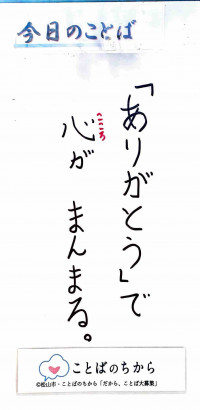 今日のことば
「ありがとう」で
心が まんまる。
こころ
ことばのちから
©松山市・ことばのちから「だから、ことば大募集」